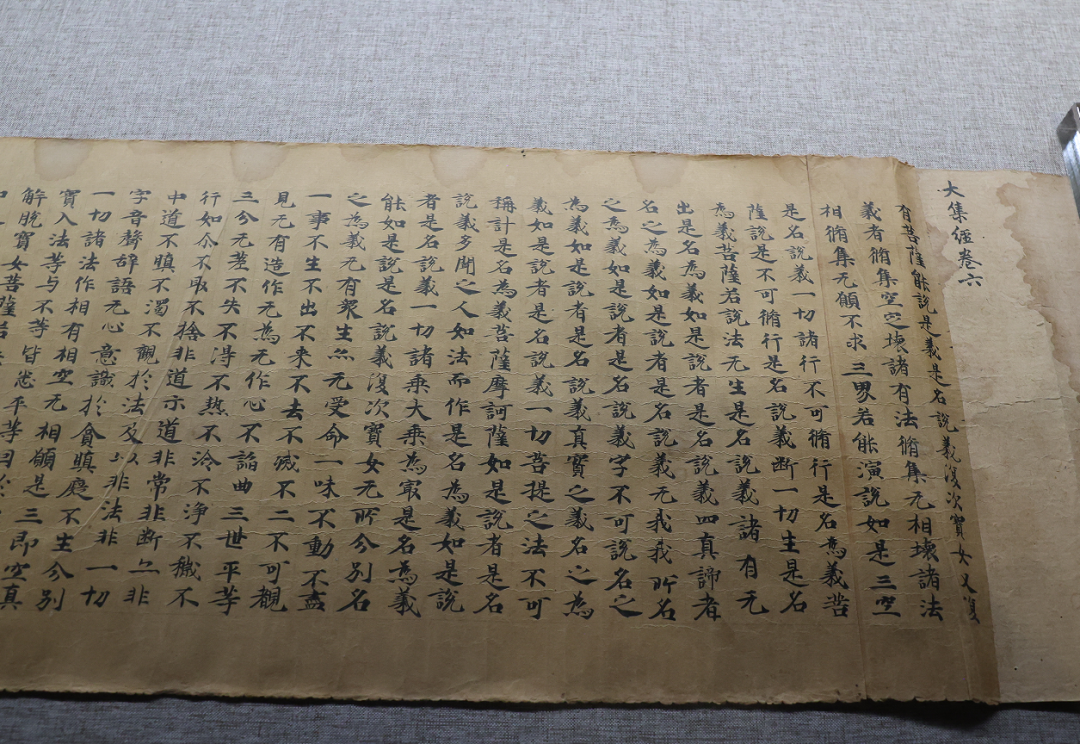 大集經卷六
有菩薩能說是義是名說義復次寶女又復
義者脩集空空壞諸有法脩集无相壞諸法
相脩集无願不求三界若能演說如是三空
是名說義一切諸行不可脩行是名爲義菩
薩說是不可脩行是名說義斷一切生是名
爲義菩薩若說法无生是名說義諸有无
出是名爲義如是說者是名說義四真諦者
名之爲義如是說者是名說義无我我所名
之爲義如是說者是名說義字不可說名之
爲義如是說者是名說義真實之義名之爲
義如是說者是名說義一切菩提之法不可
稱計是名爲義菩薩摩訶薩如是說者是名
說義多聞之人如法而作是名爲義如是說
者是名說義一切諸乘大乘爲冣是名爲義
能如是說是名說義復次寶女无所分別名
之爲義无有衆生亦无受命一味不動不盡
一事不生不出不来不去不滅不二不可觀
見无有造作无爲无作心不諂曲三世平等
三分无差不失不得不热不冷不净不穢不
行如尒不取不捨非道示道非常非斷亦非
中道不瞋不濁不觀於法及以非法非一切
字音聲辞語无心意識於貪瞋癡不生分別
一切諸法作相有相空无相願是三即空真
實入法等与不等皆悉平等因於
解脫寶女菩薩若